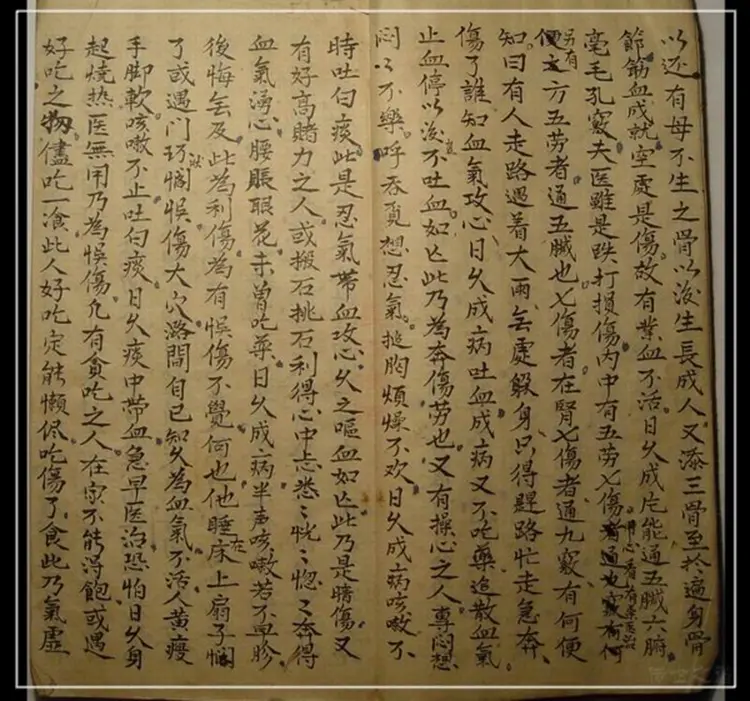 以还有母不生之骨以後生長成人又添三骨至於遍身骨
節筋血成就空處是傷故有業血不活日久成片能通五臟六腑
毫毛孔竅夫医雖是跌打損傷内中有五劳七傷
另有
便之方五劳者通五臟也七傷者在腎七傷者通九竅有何便
知曰有人走路遇着大雨無處躱身只得趕路忙走急奔
傷了誰知血氣攻心日久成病吐血成病又不吃藥追散血氣
止血停以後不吐血如亡此乃為奔傷劳也又有操心之人專悶想
悶悶不樂呼吞覓想忍氣搥胸煩燥不欢日久成病咳嗽不
時吐白痰此是忍氣帶血攻心久之嘔血如亡此乃是暗傷又
有好高賭力之人或搬石挑石利得心中忐悉恍惚奔得
血氣湧心腰賬眼花未曾吃藥日久成病半声咳嗽若不早胗
後悔無及此為利傷為有悞傷不覺何也他睡在床上扇子惆
了或遇門巧惆悞傷大穴路間自已知久為血氣不活人黄瘦
手脚軟咳嗽不止吐白痰日久痰中帶血急早医治恐怕日久身
起燒热医無用乃為悞傷凢有貪吃之人在家不能得飽或遇
好吃之物儘吃一飡此人好吃定能懶侭吃傷了食此乃氣虚